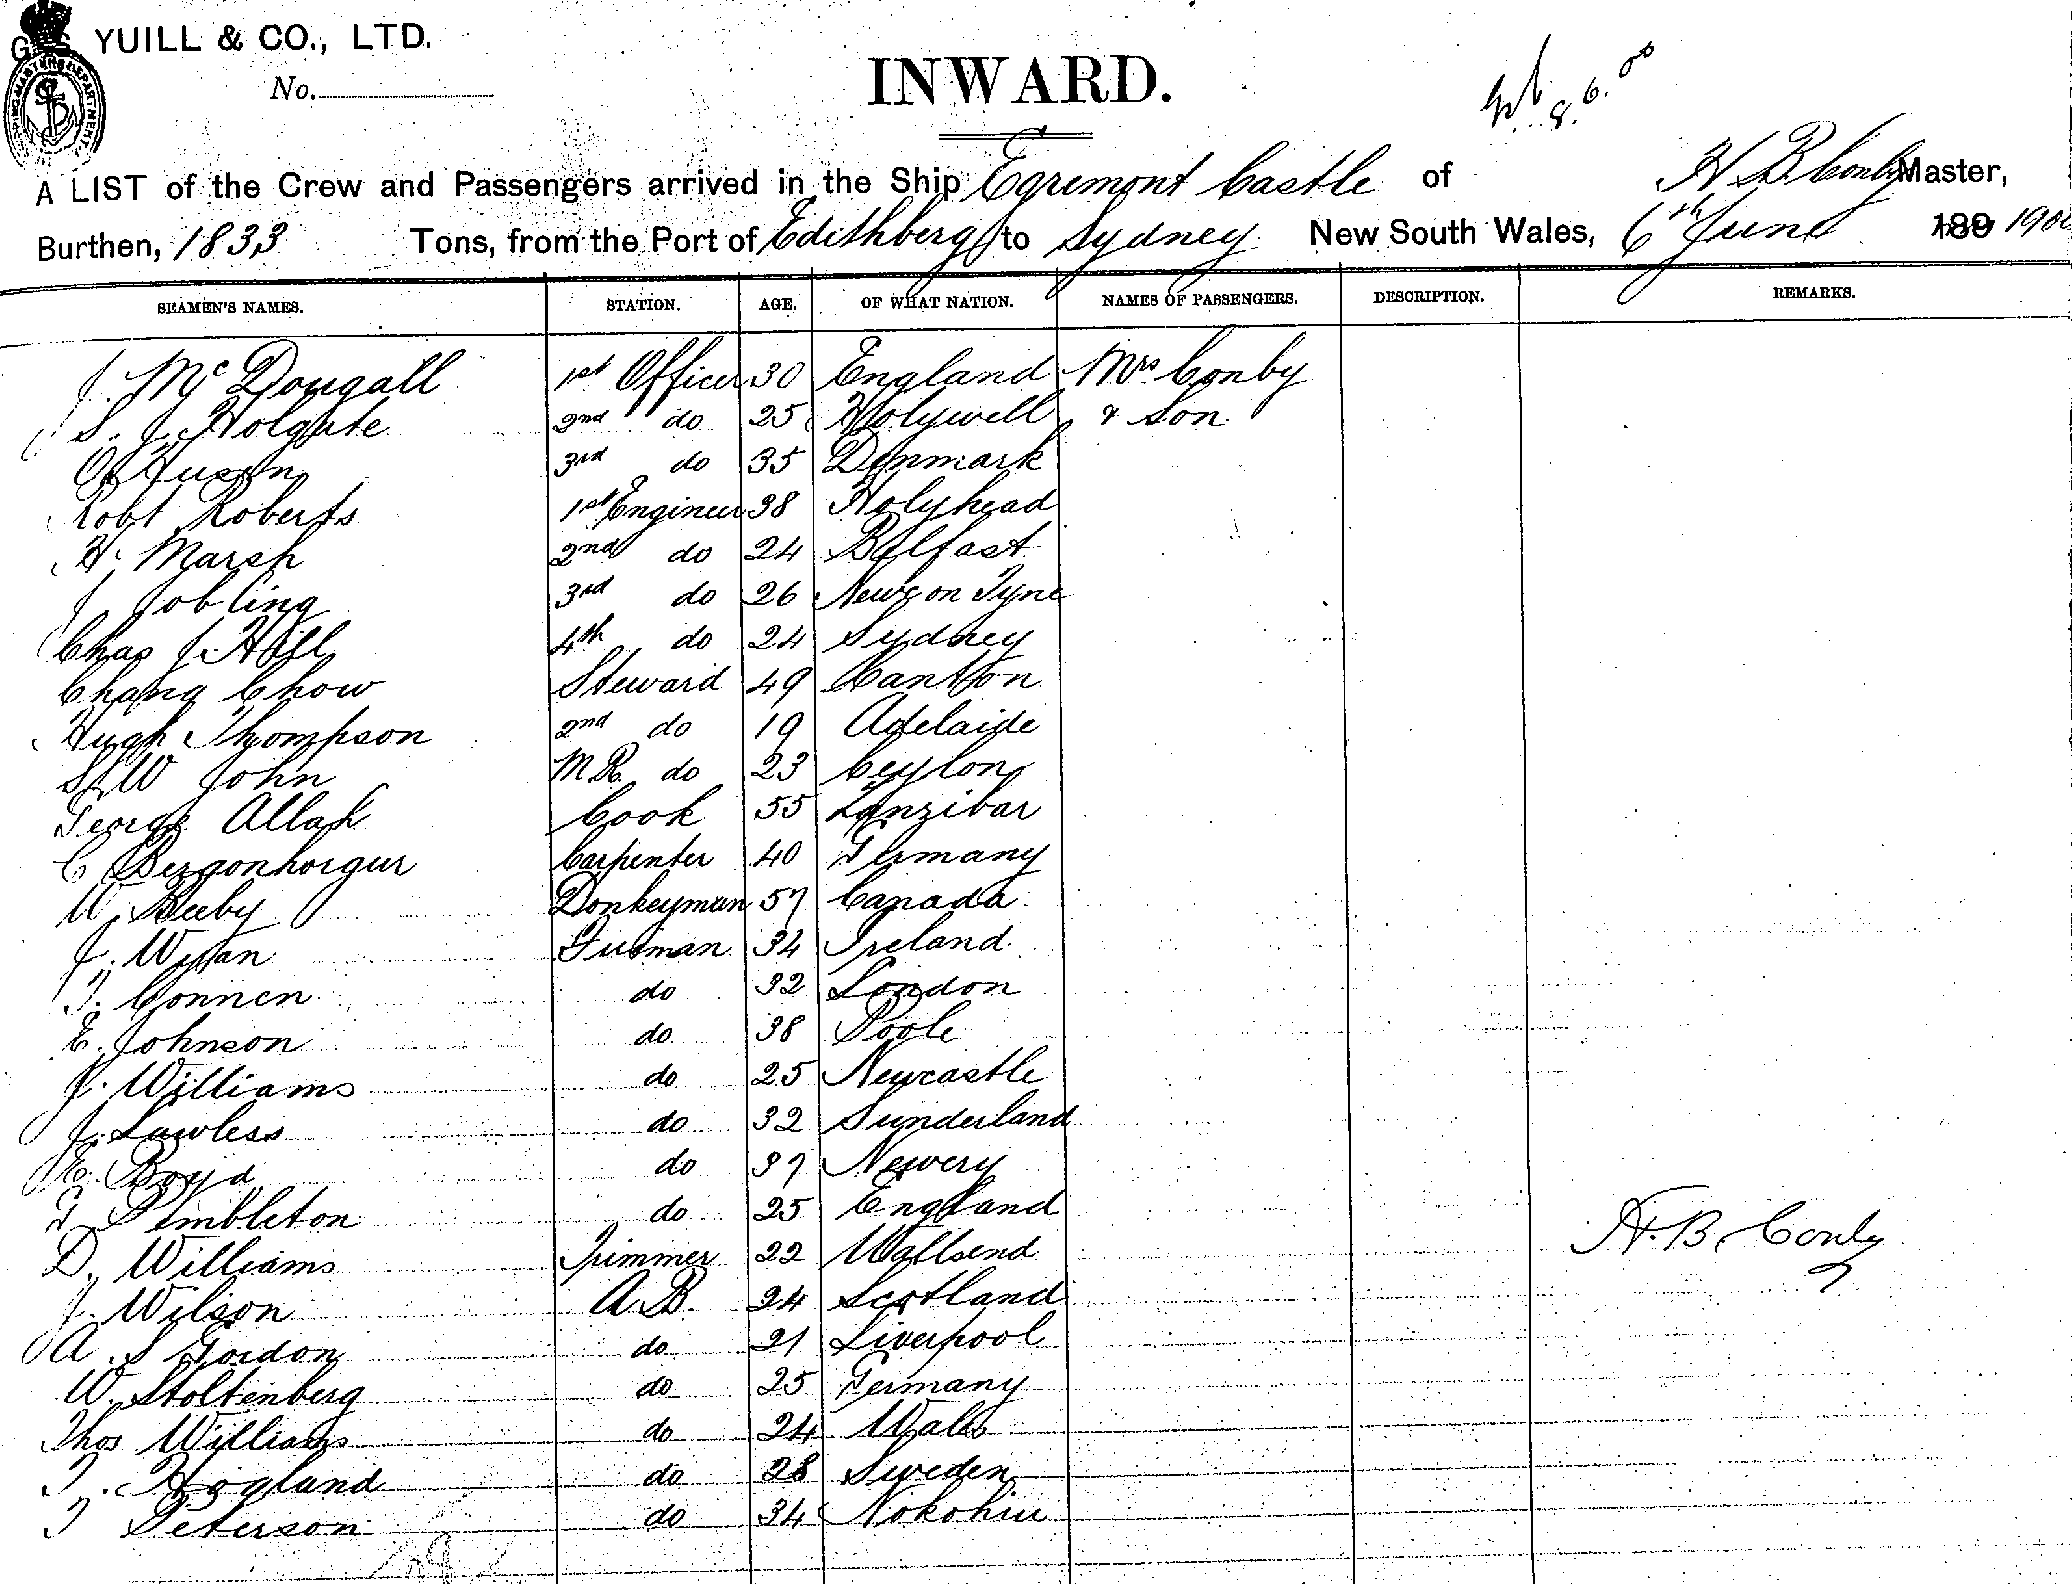 YUILL & CO., LTD.
No.
INWARD.
8.6.00
A LIST of the Crew and Passengers arrived in the Ship Egremont Castle of H B Conby Master,
Burthen, 1833 Tons, from the Port of Edithberg to Sydney New South Wales, 6th June 189 1900
SEAMEN'S NAMES. STATION. AGE. OF WHAT NATION. NAMES OF PASSENGERS. DESCRIPTION. REMARKS.
J. McDougall 1st Officer 30 England Mrs Conby
S. J. Holgate 2nd do 25 Holywell & Son
3rd do 35 Denmark
Robt Roberts 1st Engineer 38 Holyhead
H. Marsh 2nd do 24 Belfast
J Jobling 3rd do 26 Newc on Tyne
Chas J. Hill 4th do 24 Sydney
Chang Chow Steward 49 Canton
Hugh Thompson 2nd do 19 Adelaide
W John M.R. do 23 Ceylon
George Allah Cook 55 Zanzibar
C Carpenter 40 Germany
W. Beeby Donkeyman 57 Canada
J. Fireman 34 Ireland
T. Connen do 32 London
E. Johnson do 38 Poole
J. Williams do 25 Newcastle
J. Lawless do 32 Sunderland
E. Boyd do 37 Newery
T Pembleton do 25 England
D. Williams Trimmer 22 Wallsend
J. Wilson A.B. 24 Scotland
A. S Gordon do 21 Liverpool
W. Stoltenberg do 25 Germany
Thos Williams do 24 Wales
T. Hogland do 28 Sweden
T Peterson do 34
H. B. Conby